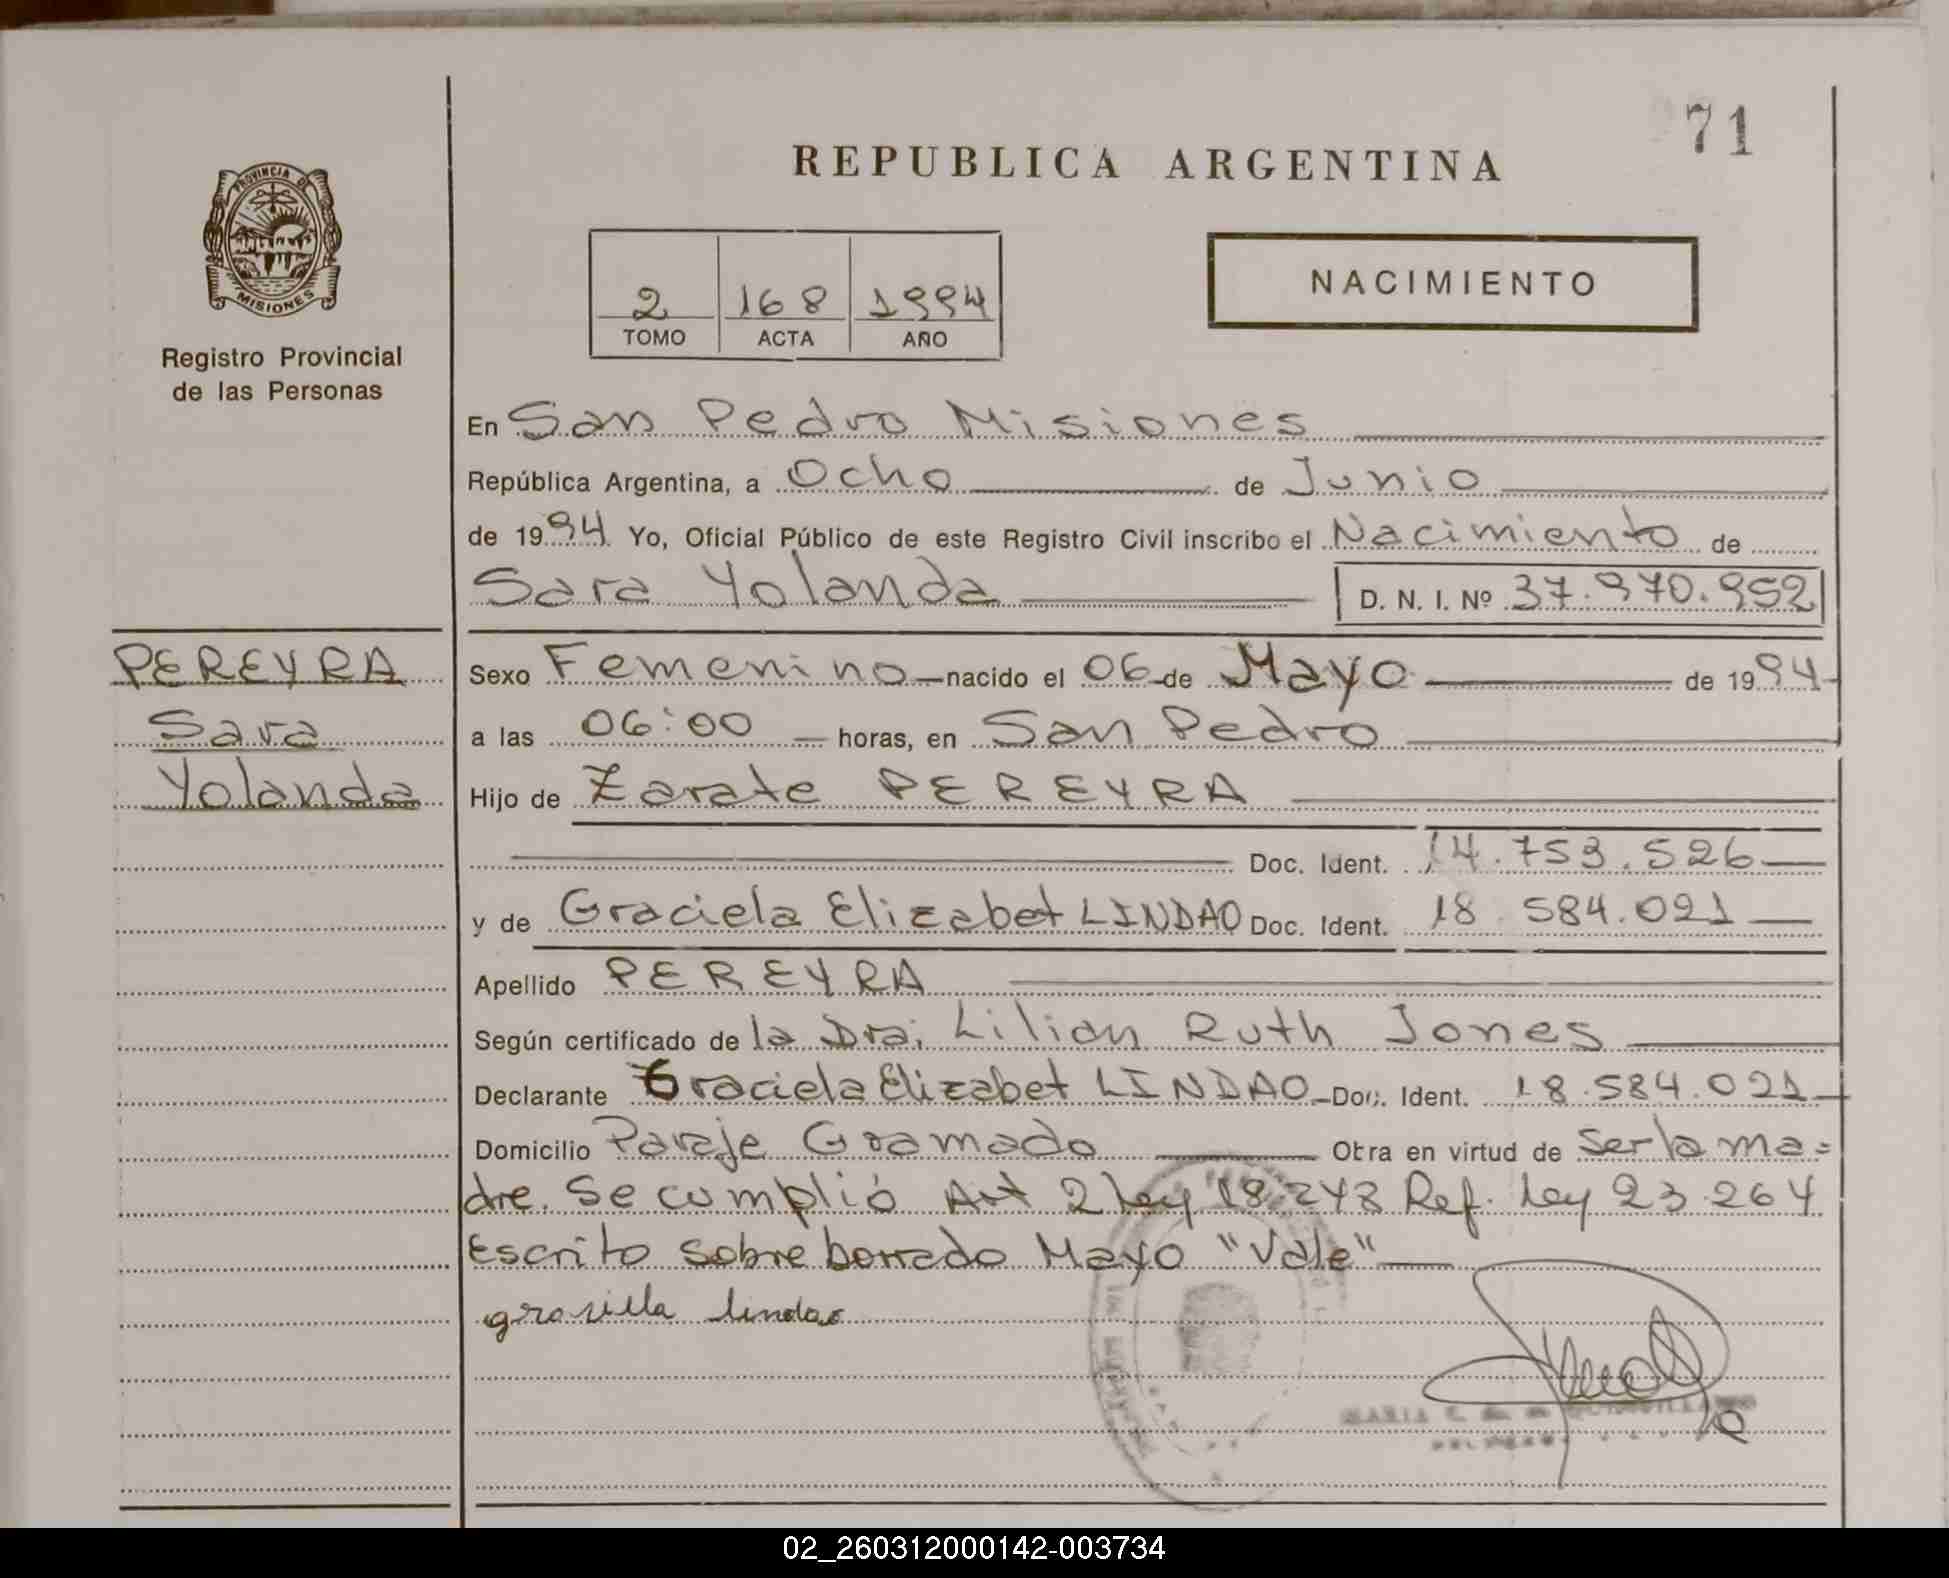 71
REPUBLICA ARGENTINA
PROVINCIA DE
MISIONES
Registro Provincial
de las Personas
2 168 1994
TOMO ACTA AÑO
NACIMIENTO
En San Pedro Misiones
República Argentina, a Ocho de Junio
de 1994 Yo, Oficial Público de este Registro Civil inscribo el Nacimiento de
Sara Yolanda D. N. I. Nº 37.970.952
PEREYRA
Sara
Yolanda
Sexo Femenino nacido el 06 de Mayo de 1994
a las 06:00 horas, en San Pedro
Hijo de Zarate PEREYRA
Doc. Ident. 14.753.526
y de Graciela Elizabet LINDAO Doc. Ident. 18.584.021
Apellido PEREYRA
Según certificado de la Dra. Lilian Ruth Jones
Declarante Graciela Elizabet LINDAO Doc. Ident. 18.584.021
Domicilio Paraje Gramado Otra en virtud de ser la ma=
dre. Se cumplió Art 2 Ley 18.248 Ref. Ley 23.264
Escrito sobre borrado Mayo "Vale"
grasilla lindao
MARIA
02_260312000142-003734